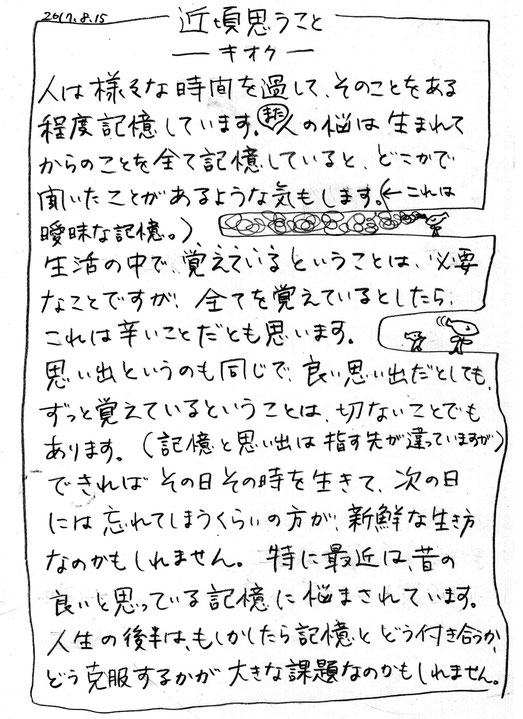 2017.8.15
近頃思うこと
—キオク—
人は様々な時間を過して、そのことをある
程度記憶しています。また人の悩は生まれて
からのことを全て記憶していると、どこかで
聞いたことがあるような気もします。(←これは
曖昧な記憶。)
生活の中で、覚えているということは、必要
なことですが、全てを覚えているとしたら、
これは辛いことだとも思います。
思い出というのも同じで、良い思い出だとしても、
ずっと覚えているということは、切ないことでも
あります。(記憶と思い出は指す先が違っていますが)
できればその日その時を生きて、次の日
には忘れてしまうくらいの方が、新鮮な生き方
なのかもしれません。特に最近は、昔の
良いと思っている記憶に悩まされています。
人生の後半は、もしかしたら記憶とどう付き合うか、
どう克服するかが大きな課題なのかもしれません。